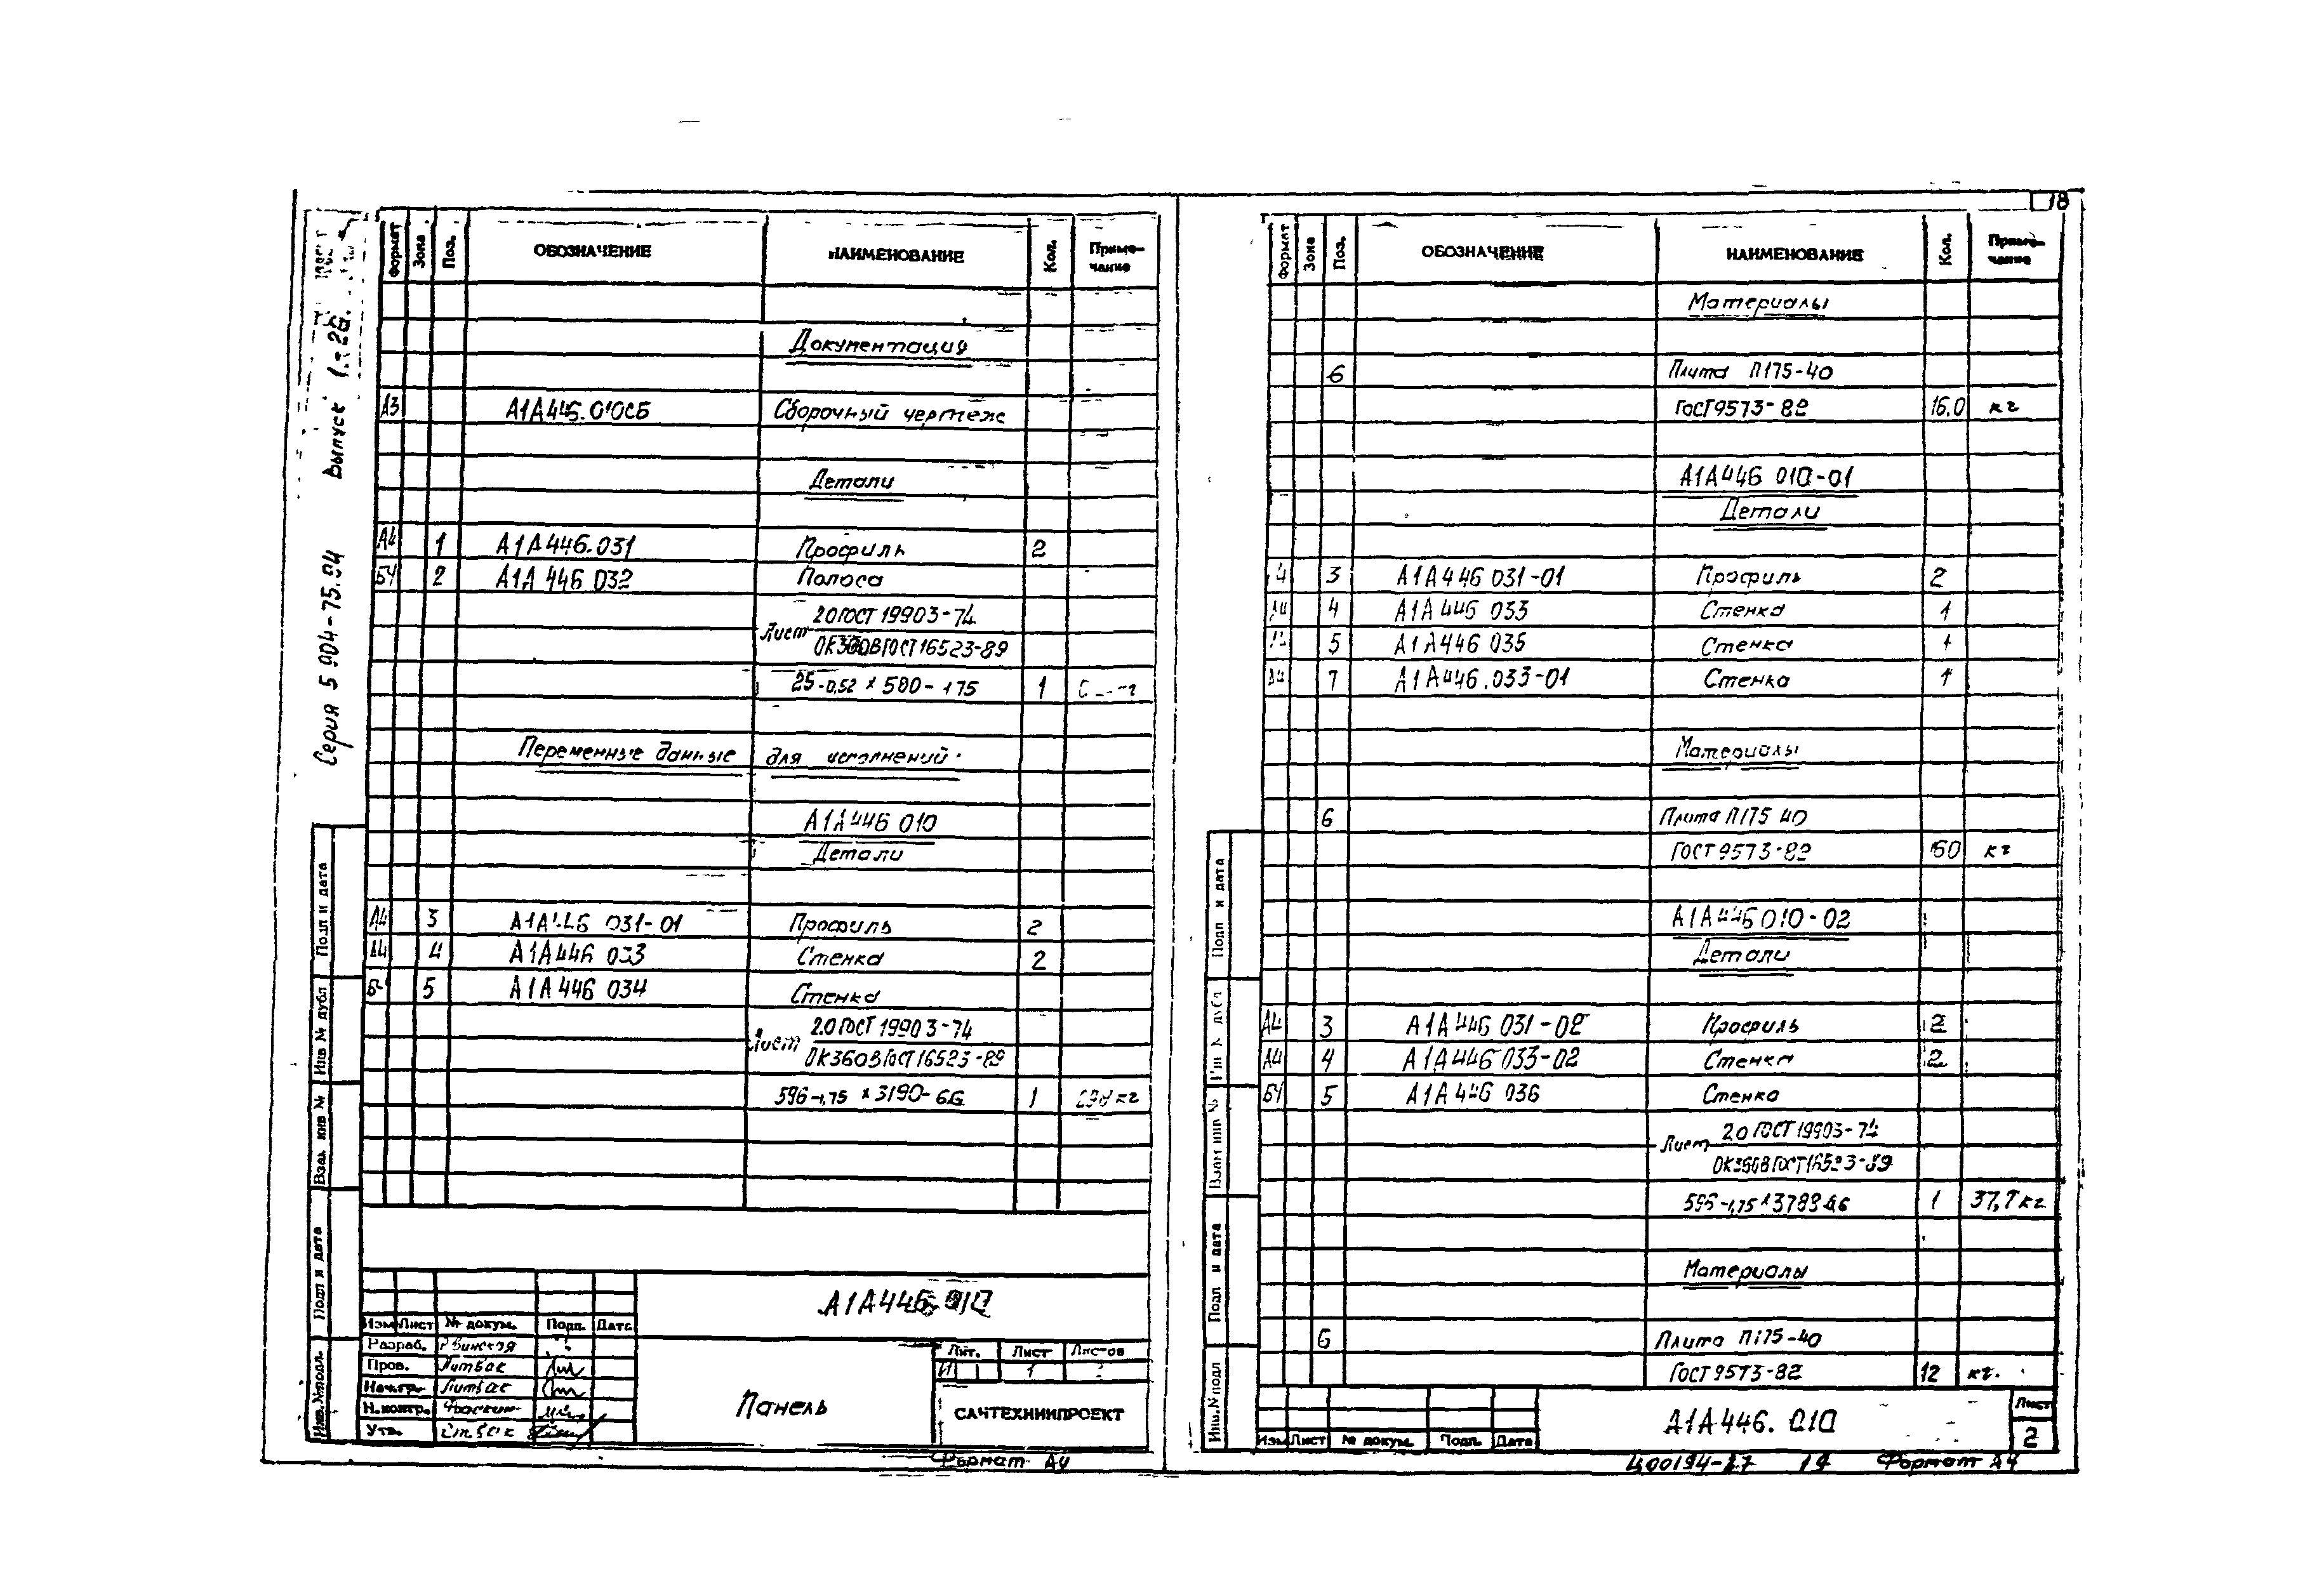 18
Серия 5 904-75.94 Выпуск 1-26.
Формат Зона Поз. ОБОЗНАЧЕНИЕ НАИМЕНОВАНИЕ Кол. Приме-чание
Документация
А3 А1А446.010СБ Сборочный чертеж
Детали
А4 1 А1А446.031 Профиль 2
БЧ 2 А1А 446 032 Полоса
Лист 2.0 ГОСТ 19903-74
ОК360В ГОСТ 16523-89
25-0,52 х 580-1.75 1
Переменные данные для исполнений
А1А 446 010
Детали
А4 3 А1А446 031-01 Профиль 2
А4 4 А1А446 033 Стенка 2
Б 5 А1А 446 034 Стенка
Лист 2.0 ГОСТ 19903-74
ОК360В ГОСТ 16523-89
596-1,75 х 3190-6.6 1 кг
А1А446.010
Изм Лист № докум. Подп. Дата
Разраб.
Пров. Литвак
Нач.гр. Литвак
Н.контр.
Утв.
Панель
Лит. Лист Листов
И 1
САНТЕХНИИПРОЕКТ
Формат А4
Подп и дата
Инв № дубл
Взам инв №
Подп и дата
Инв. № подл.
Формат Зона Поз. ОБОЗНАЧЕНИЕ НАИМЕНОВАНИЕ Кол. Приме-чание
Материалы
6 Плита П175-40
ГОСТ 9573-82 16.0 кг
А1А446 010-01
Детали
4 3 А1А446 031-01 Профиль 2
А4 4 А1А 446 033 Стенка 1
5 А1А446 035 Стенка 1
А4 7 А1А446.033-01 Стенка 1
Материалы
6 Плита П175 40
ГОСТ 9573-82 160 кг
А1А446 010-02
Детали
А4 3 А1А446 031-02 Профиль 2
А4 4 А1А446 033-02 Стенка 2
БЧ 5 А1А 446 036 Стенка
Лист 2.0 ГОСТ 19903-74
ОК360В ГОСТ 16523-89
596-1,75 х 3788-6.6 1 37,7 кг
Материалы
6 Плита П175-40
ГОСТ 9573-82 12 кг.
Изм Лист № докум. Подп. Дата
А1А446. 010
Лист
2
Ц00194-27 19 Формат А4
Подп и дата
Инв № дубл
Взам инв №
Подп и дата
Инв. № подл